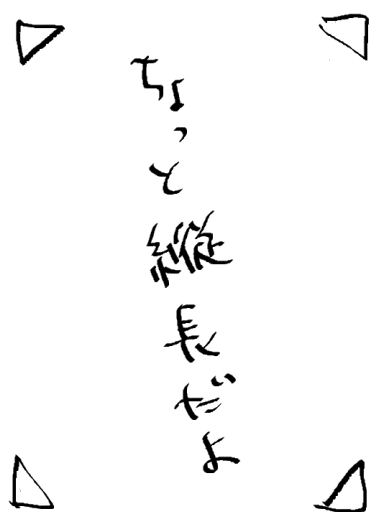 ちょっと縦長だよ